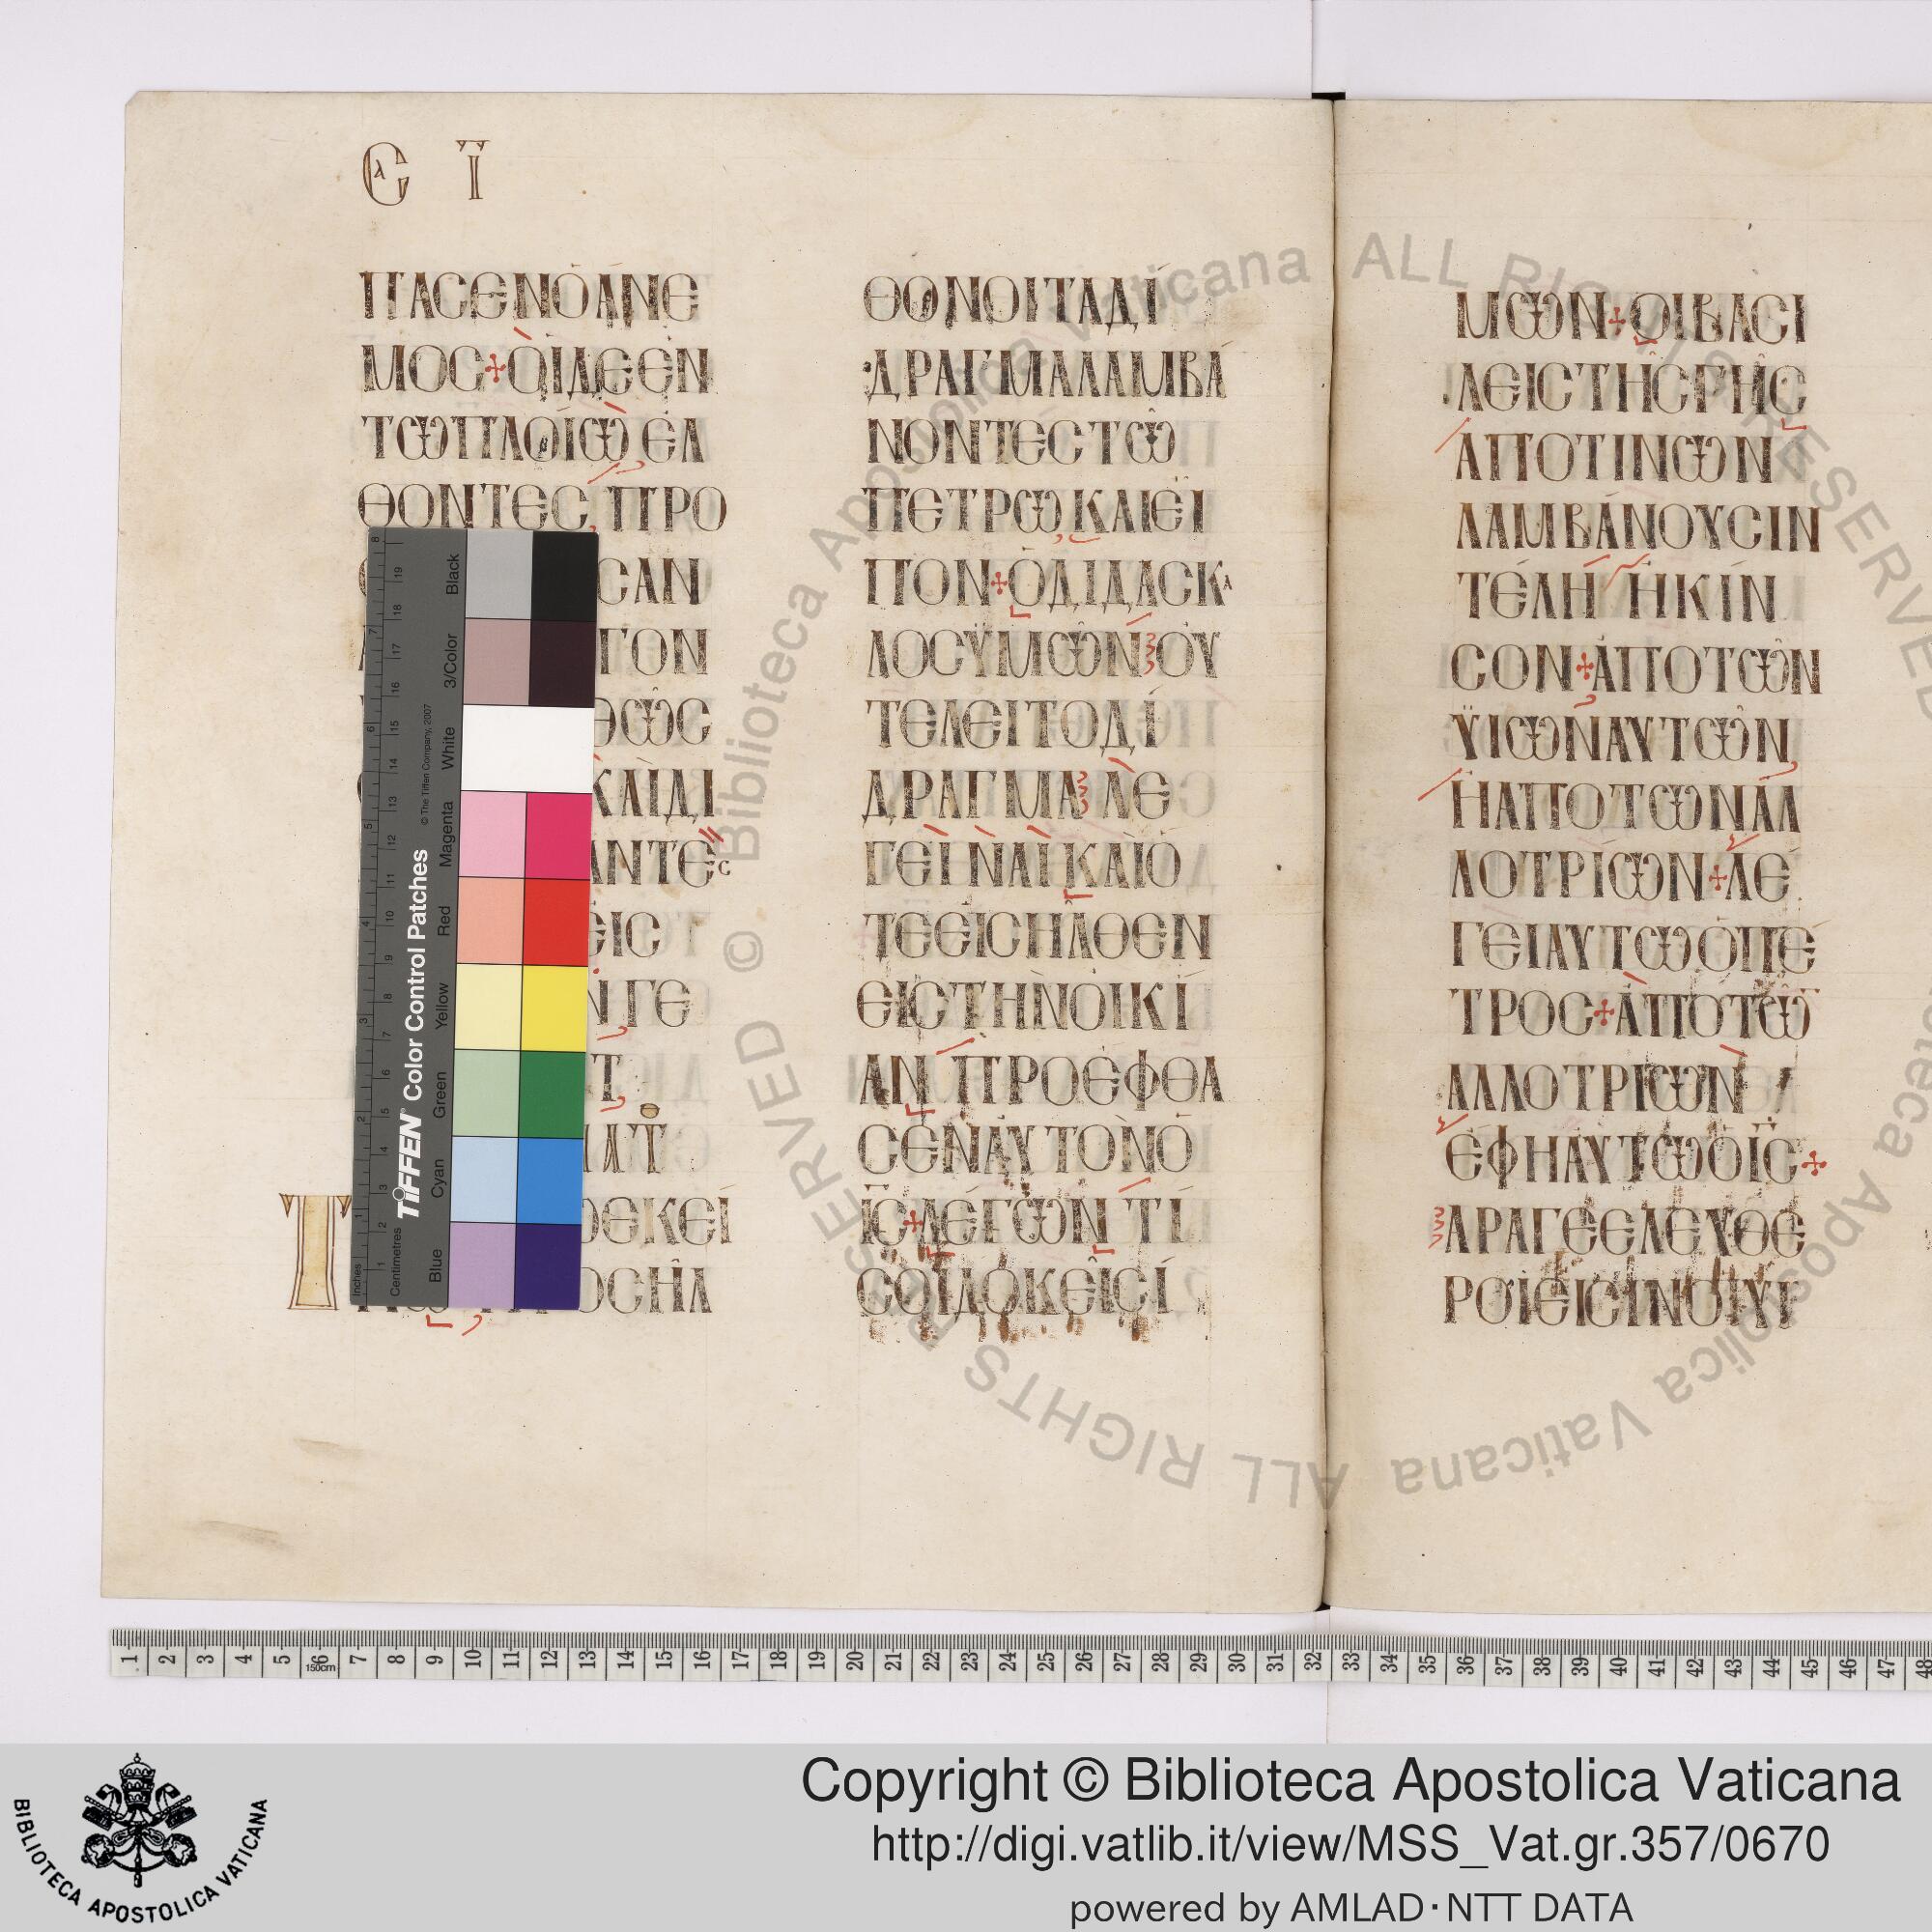 Ϲλ Ϊ
ΠΑϹΕΝΟΑΝΕ
ΜΟϹ+ΟΙΔΕΕΝ
ΤΩΠΛΟΙΩΕΛ
ΘΟΝΤΕϹΠΡΟ
ϹΑΝ
ΓΟΝ
ΘΩϹ
ΚΑΙΔΙ
ΑΝΤΕϹ
ΕΙϹ
ΝΓΕ
Τ
ΜΑΤΘ
Τ
ΘΕΚΕΙ
ΟϹΗΛ
ΘΟΝΟΙΤΑΔΙ
ΔΡΑΓΜΑΛΑΜΒΑ
ΝΟΝΤΕϹΤΩ
ΠΕΤΡΩΚΑΙΕΪ
ΠΟΝ+ΟΔΙΔΑϹΚΑ
ΛΟϹΫΜΩΝΟΥ
ΤΕΛΕΙΤΟΔΙ
ΔΡΑΓΜΑΛΕ
ΓΕΙΝΑΙΚΑΙΟ
ΤΕΕΙϹΗΛΘΕΝ
ΕΙϹΤΗΝΟΙΚΙ
ΑΝΠΡΟΕΦΘΑ
ϹΕΝΑΥΤΟΝΟ
ΙϹ+ΛΕΓΩΝΤΙ
ϹΟΙΔΟΚΕΙϹΙ
ΜΩΝ+ΟΙΒΑϹΙ
ΛΕΙϹΤΗϹΓΗϹ
ΑΠΟΤΙΝΩΝ
ΛΑΜΒΑΝΟΥϹΙΝ
ΤΕΛΗΗΚΙΝ
ϹΟΝ+ΑΠΟΤΩΝ
ΫΙΩΝΑΥΤΩΝ
ΗΑΠΟΤΩΝΑΛ
ΛΟΤΡΙΩΝ+ΛΕ
ΓΕΙΑΥΤΩΟΠΕ
ΤΡΟϹ+ΑΠΟΤΩ
ΑΛΛΟΤΡΙΩΝ
ΕΦΗΑΥΤΩΟΙϹ+
ΑΡΑΓΕΕΛΕΥΘΕ
ΡΟΙΕΙϹΙΝΟΙΥΙ
TIFFEN Color Control Patches
© The Tiffen Company, 2007
Inches
Centimetres
Blue
Cyan
Green
Yellow
Red
Magenta
White
3/Color
Black
© Biblioteca Apostolica Vaticana ALL RIGHTS RESERVED
1 2 3 4 5 6 7 8 9 10 11 12 13 14 15 16 17 18 19 20 21 22 23 24 25 26 27 28 29 30 31 32 33 34 35 36 37 38 39 40 41 42 43 44 45 46 47 48
150cm
BIBLIOTECA APOSTOLICA VATICANA
Copyright © Biblioteca Apostolica Vaticana
http://digi.vatlib.it/view/MSS_Vat.gr.357/0670
powered by AMLAD·NTT DATA